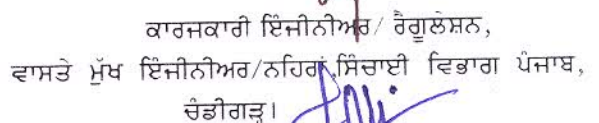 ਕਾਰਜਕਾਰੀ ਇੰਜੀਨੀਅਰ/ ਰੈਗੂਲੇਸ਼ਨ,
ਵਾਸਤੇ ਮੁੱਖ ਇੰਜੀਨੀਅਰ/ਨਹਿਰਾਂ,ਸਿੰਚਾਈ ਵਿਭਾਗ ਪੰਜਾਬ,
ਚੰਡੀਗੜ੍ਹ।